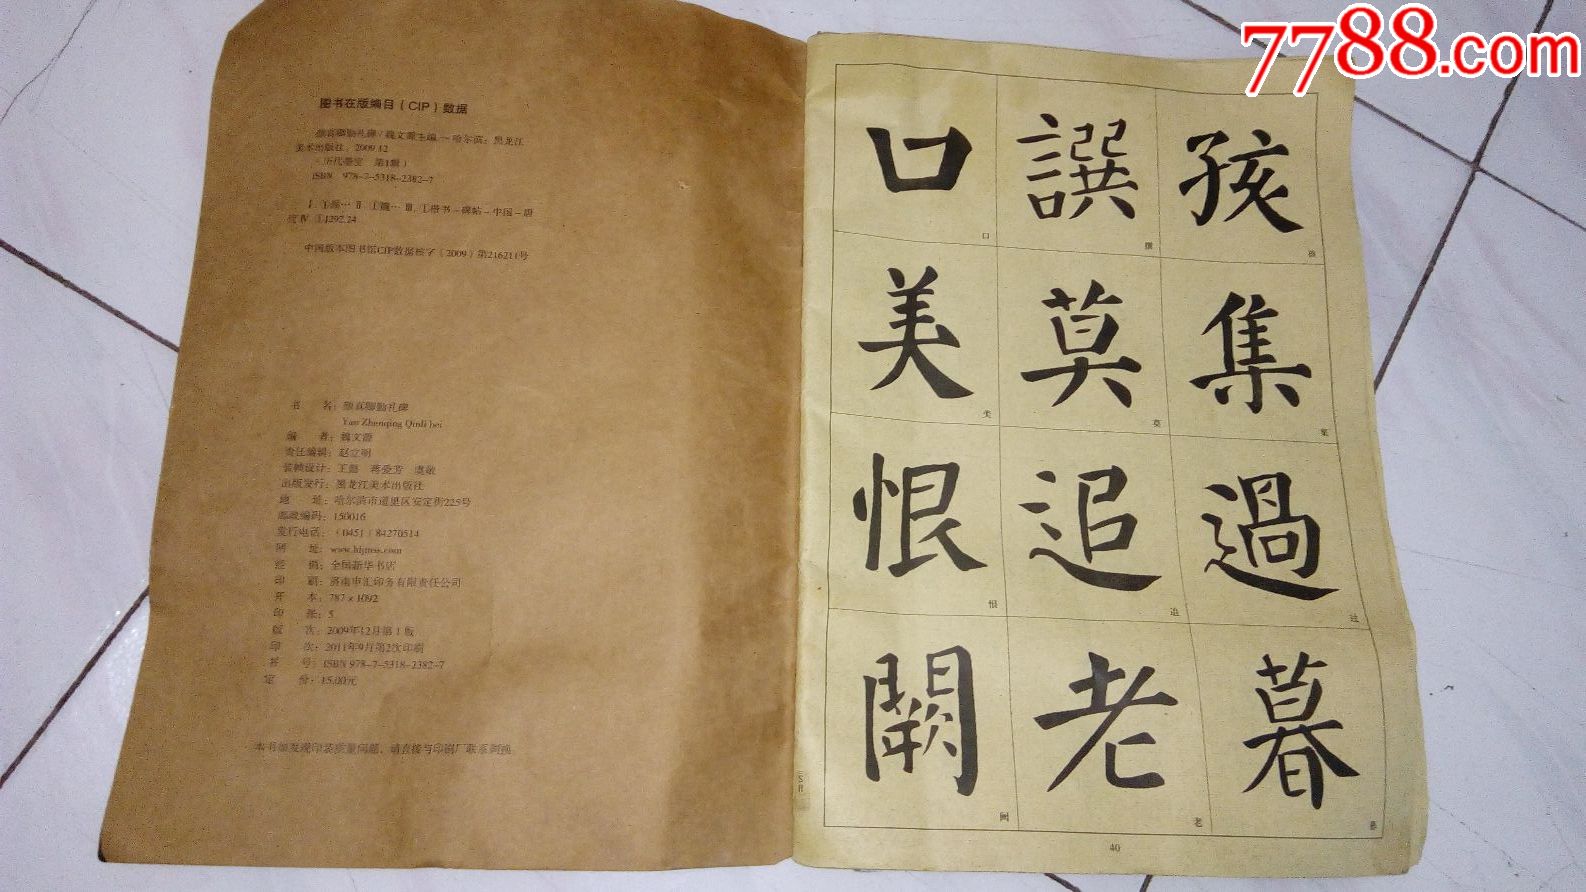 7788.com
图书在版编目(CIP)数据
颜真卿勤礼碑/魏文源主编.—哈尔滨:黑龙江
美术出版社,2009.12
(历代墨宝 第1辑)
ISBN 978-7-5318-2382-7
中国版本图书馆CIP数据核字(2009)第216211号
书 名:颜真卿勤礼碑
Yan Zhenqing Qinli bei
编 者:魏文源
责任编辑:赵立明
出版发行:黑龙江美术出版社
地 址:哈尔滨市道里区安定街225号
邮政编码:150016
发行电话:(0451)84270514
网 址:www.hljmss.com
经 销:全国新华书店
印 刷:济南申汇印务有限责任公司
开 本:787×1092
印 张:5
版 次:2009年12月第1版
印 次:2011年9月第2次印刷
书 号:ISBN 978-7-5318-2382-7
定 价:15.00元
本书如发现印装质量问题,请直接与印刷厂联系调换。
口 譔 孩
美 莫 集
恨 追 過
闕 老 暮
40